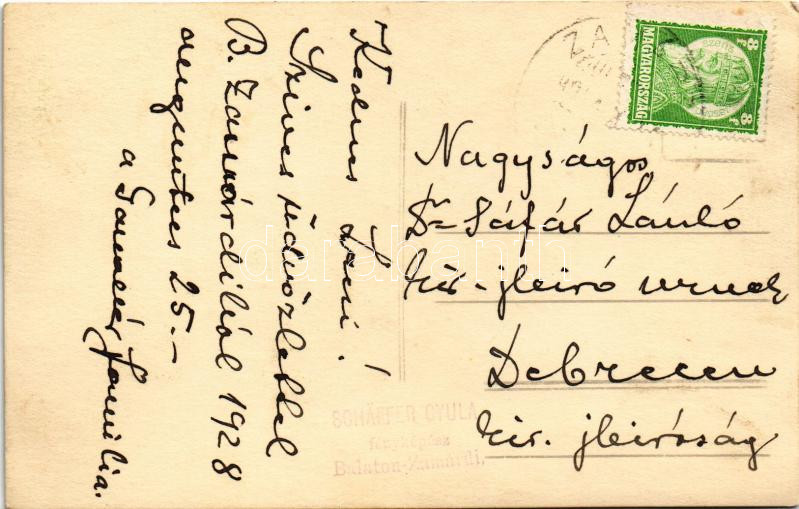 Kedves Laci!
Szives üdvözlettel
B. Zamárdiból 1928
augusztus 25.-
a família.
Nagyságos
Dr Sáfár László
kir. jbiró urnak
Debrecen
kir. jbiróság
SCHÄFFER GYULA
fényképész
Balaton-Zamárdi.
8 f
8 f
MAGYARORSZÁG
ZA
darabanth